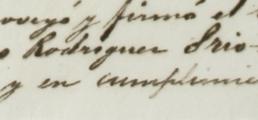 oveyó y firmó el
o Rodriguez Srio-
y en cumplimie